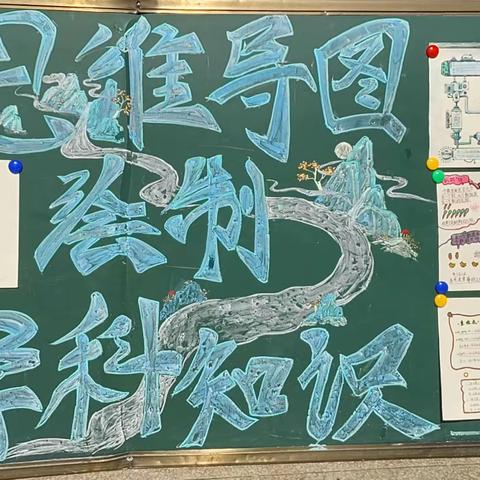 思维导图
绘制
学科知识